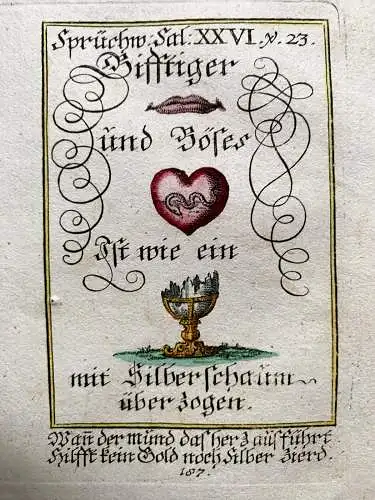 Sprüchw: Sal: XXVI. y. 23.
Gifftiger
und Böses
Ist wie ein
mit Silberschaum
überzogen.
Wañ der mund das herz ausführt
Hilfft kein Gold noch Silber Zierd.
187.